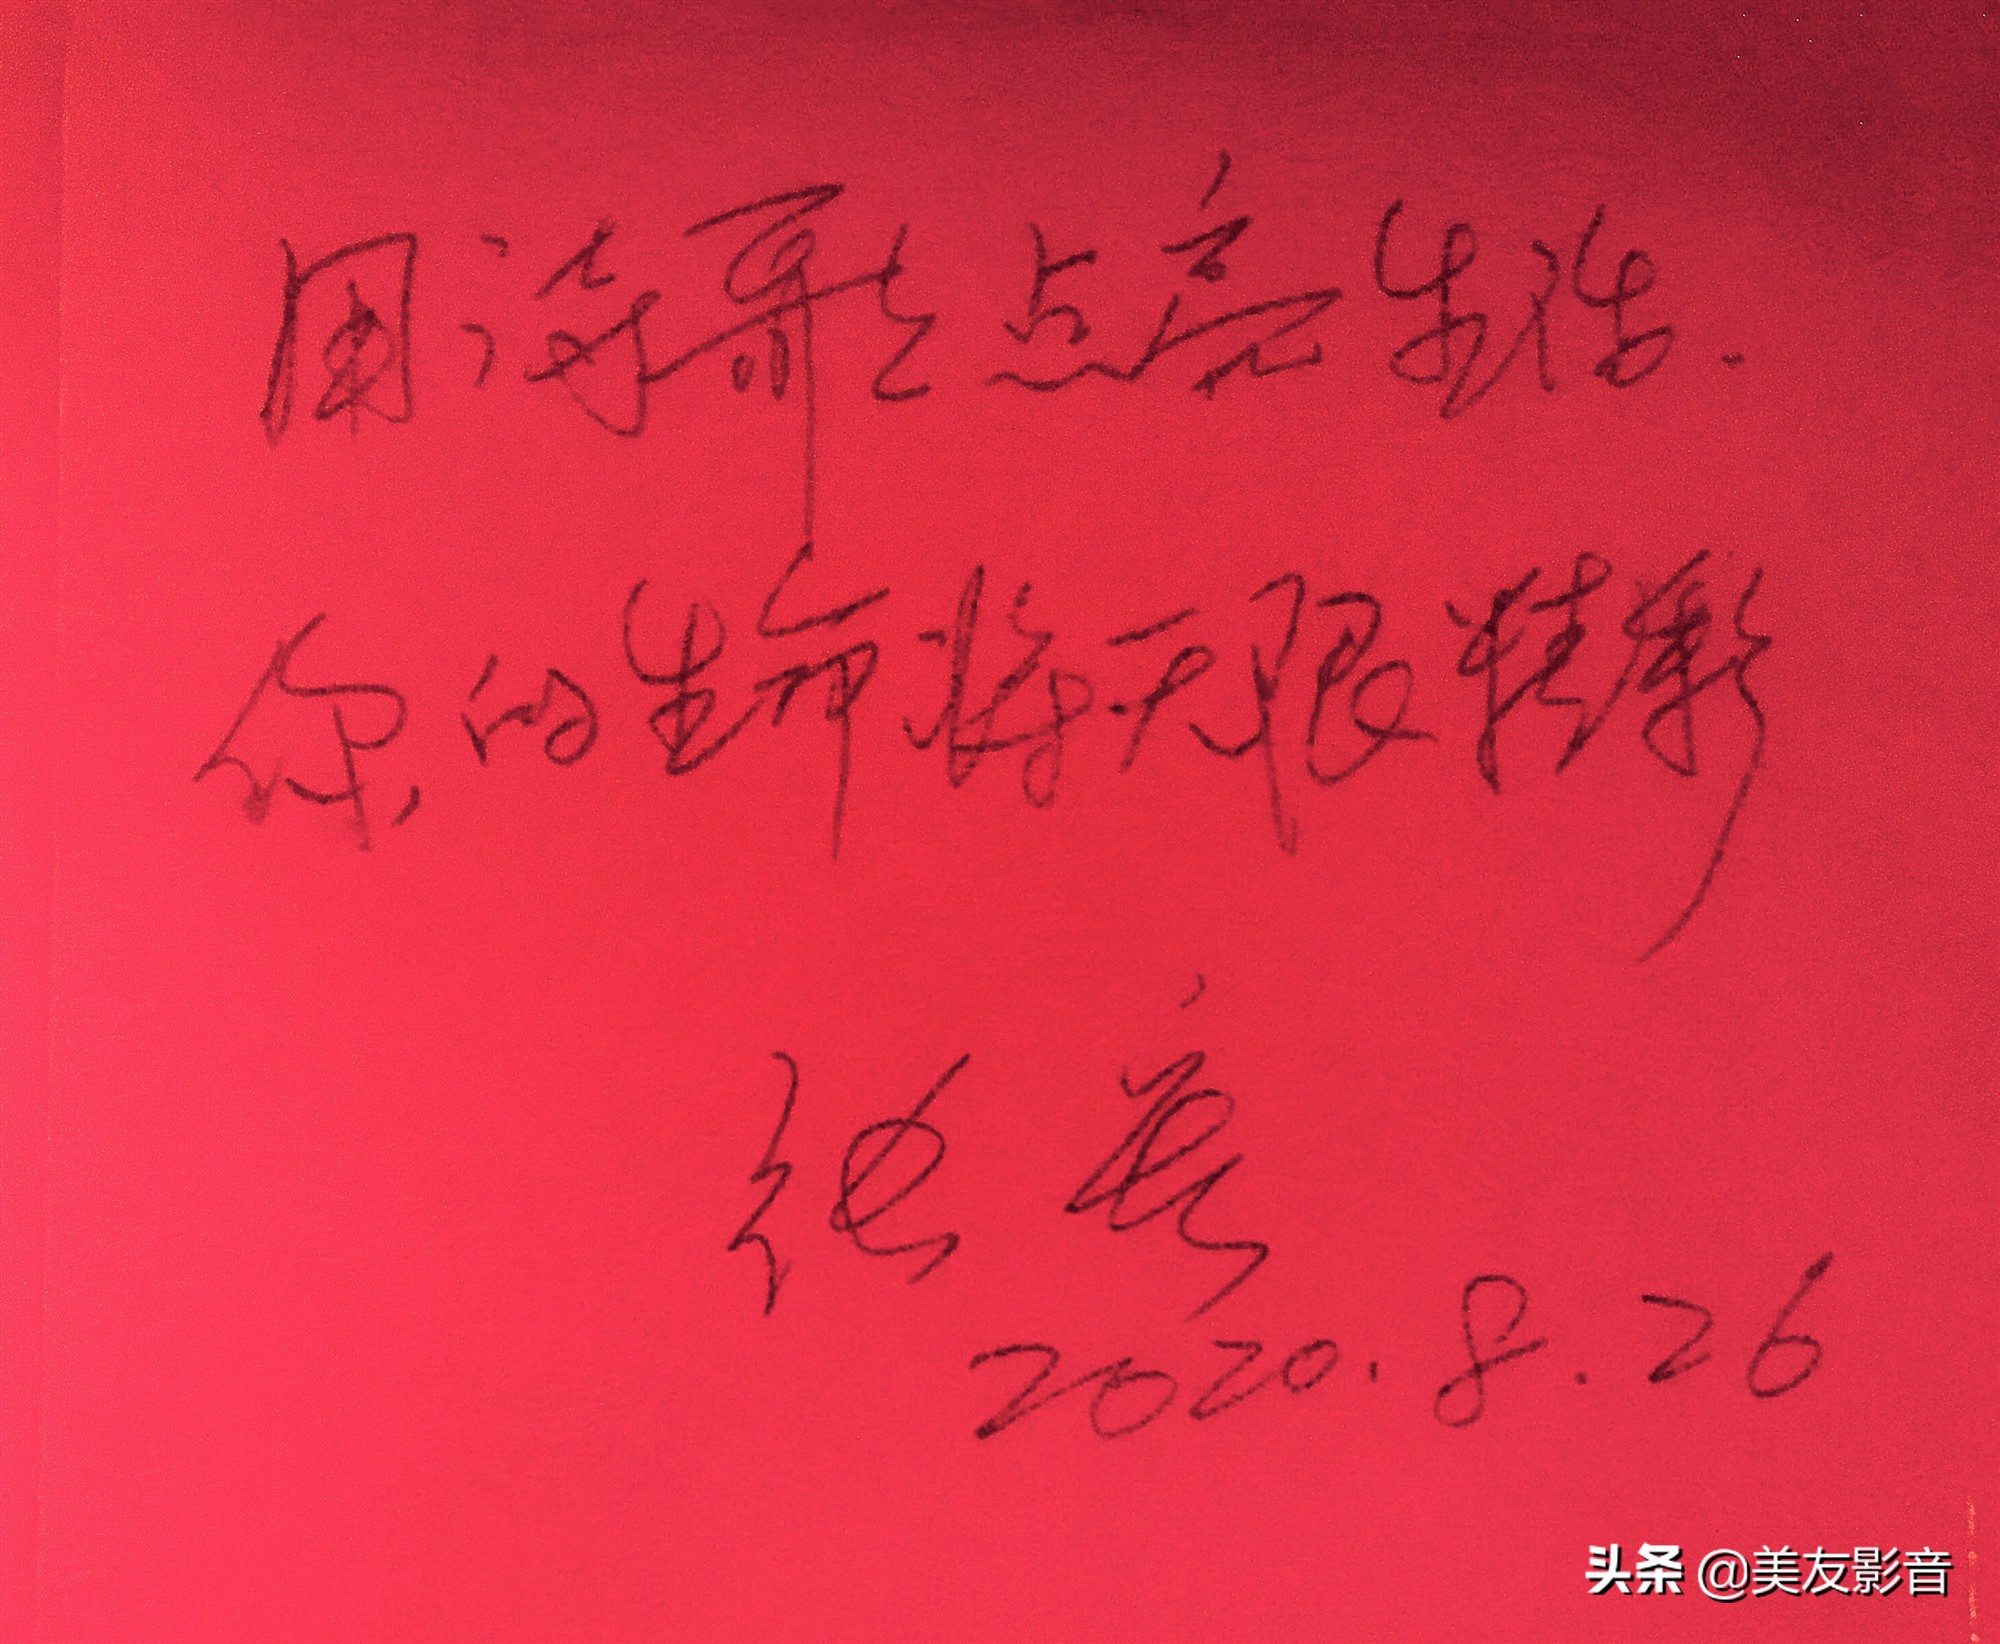 用诗歌点亮生活.
你的生命将无限精彩
张
2020.8.26
头条 @美友影音